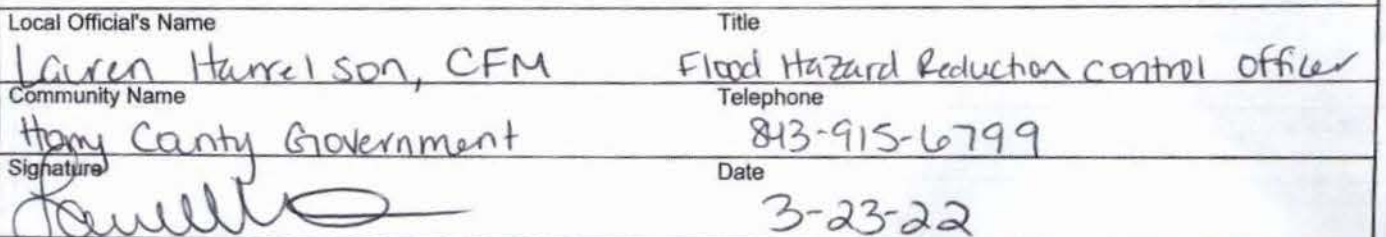 Local Official's Name Title
Lauren Harrelson, CFM Flood Hazard Reduction control officer
Community Name Telephone
Horry County Government 843-915-6799
Signature Date
3-23-22